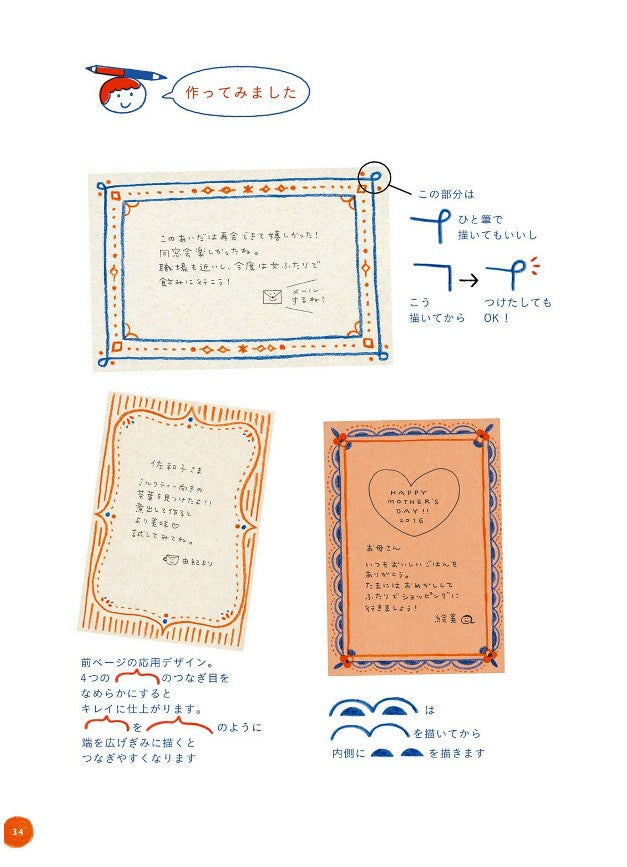 作ってみました
この部分は
ひと筆で
描いてもいいし
こう
描いてから
つけたしても
OK！
このあいだは再会できて嬉しかった！
同窓会楽しかったね。
職場も近いし、今度は女ふたりで
飲みに行こう！
メール
するね！
佐和子さま
ミルクティー向きの
茶葉を見つけたよ！
煮出して作ると
より美味♡
試してみてね。
由紀より
HAPPY
MOTHER'S
DAY!!
2016
お母さん
いつもおいしいごはんを
ありがとう。
たまにはおめかしして
ふたりでショッピングに
行きましょう！
絵美
前ページの応用デザイン。
4つの のつなぎ目を
なめらかにすると
キレイに仕上がります。
を のように
端を広げぎみに描くと
つなぎやすくなります
は
を描いてから
内側に を描きます
34